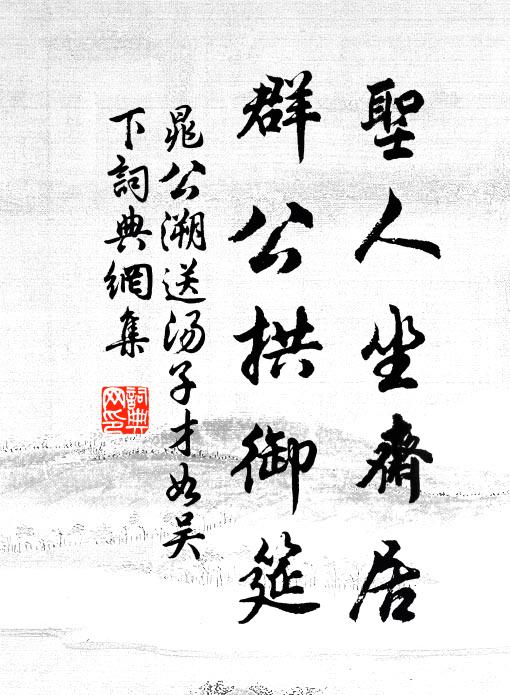 聖人坐齋居
群公拱御筵
晁公溯送汤子才如吴
下詞典網集
詞典
网印